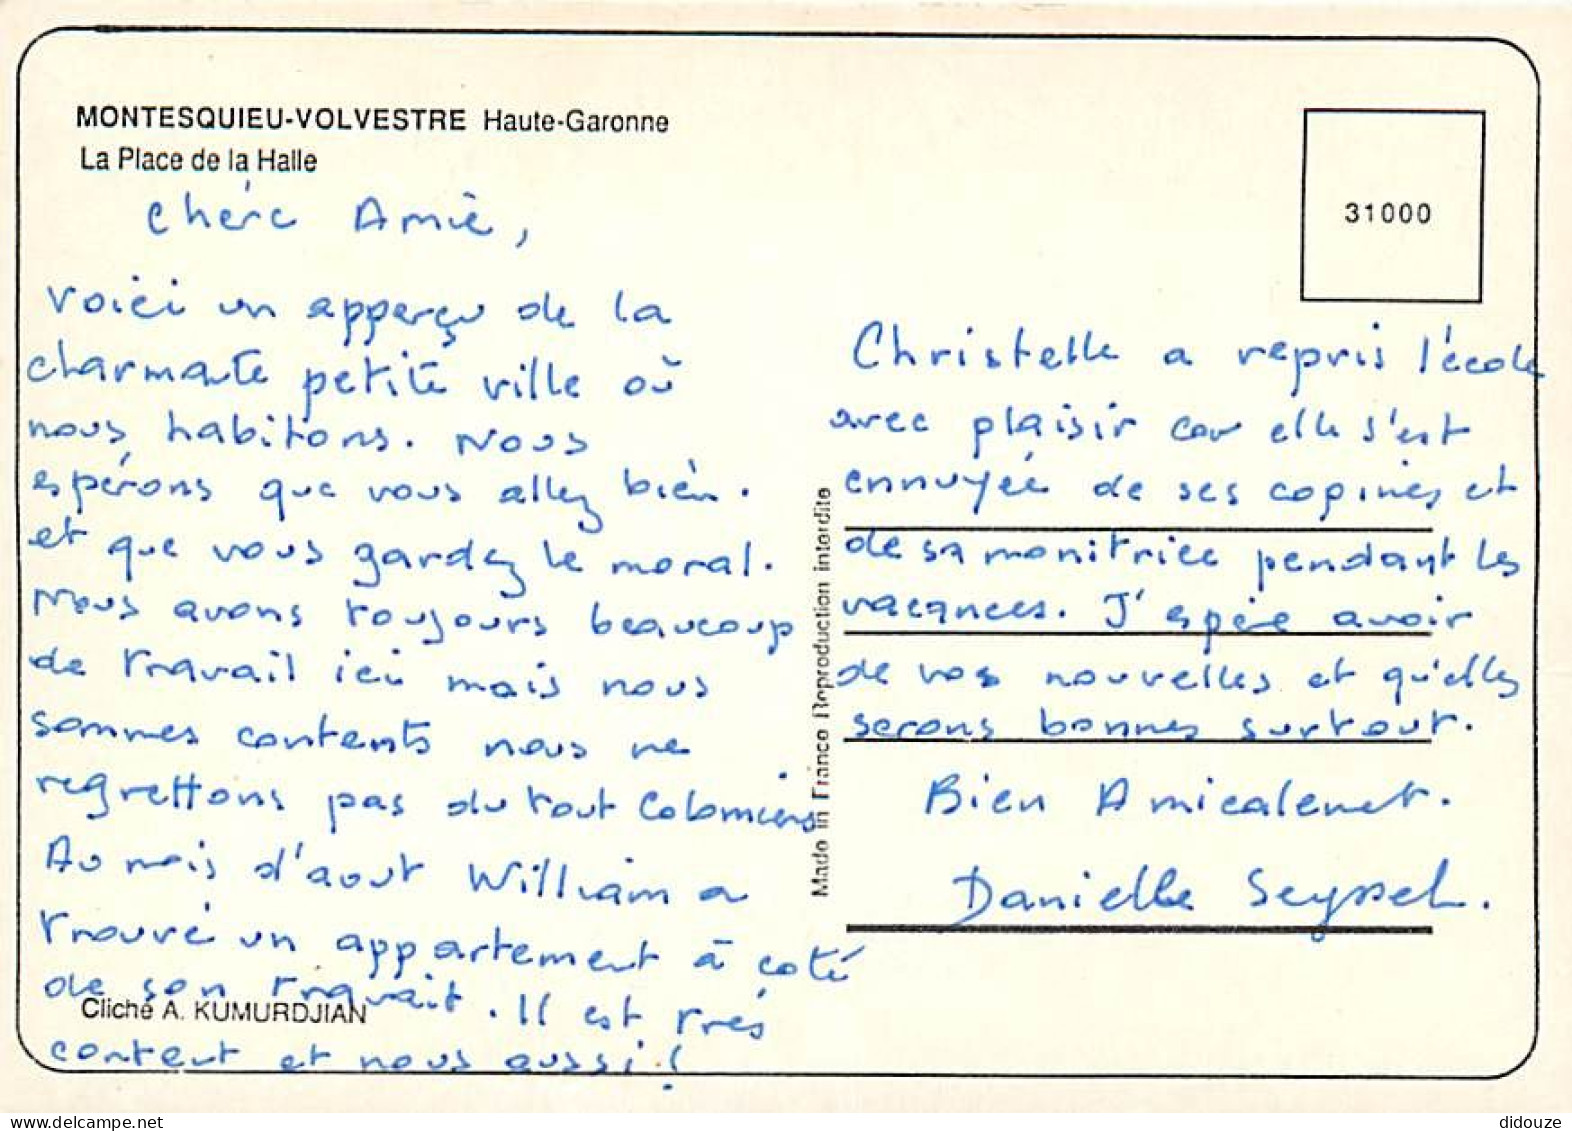 MONTESQUIEU-VOLVESTRE Haute-Garonne
La Place de la Halle
31000
Chère Amie,
Voici un apperçu de la
charmante petite ville où
nous habitons. Nous
espérons que vous allez bien.
et que vous gardez le moral.
Nous avons toujours beaucoup
de travail ici mais nous
sommes contents nous ne
regrettons pas du tout Colomiers
Au mois d'aout William a
trouvé un appartement à coté
de son travail. Il est très
content et nous aussi !
Cliché A. KUMURDJIAN
Made in France Reproduction interdite
Christelle a repris l'école
avec plaisir car elle s'est
ennuyée de ses copines et
de sa monitrice pendant les
vacances. J'espère avoir
de vos nouvelles et qu'elles
serons bonnes surtout.
Bien Amicalement.
Danielle Seyssel.
didouze